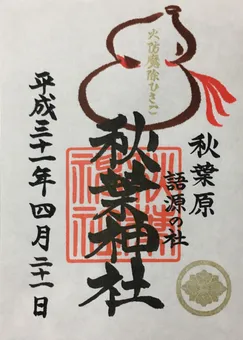 秋葉原
語源の社
火防魔除ひさご
秋葉神社
平成三十一年四月二十一日